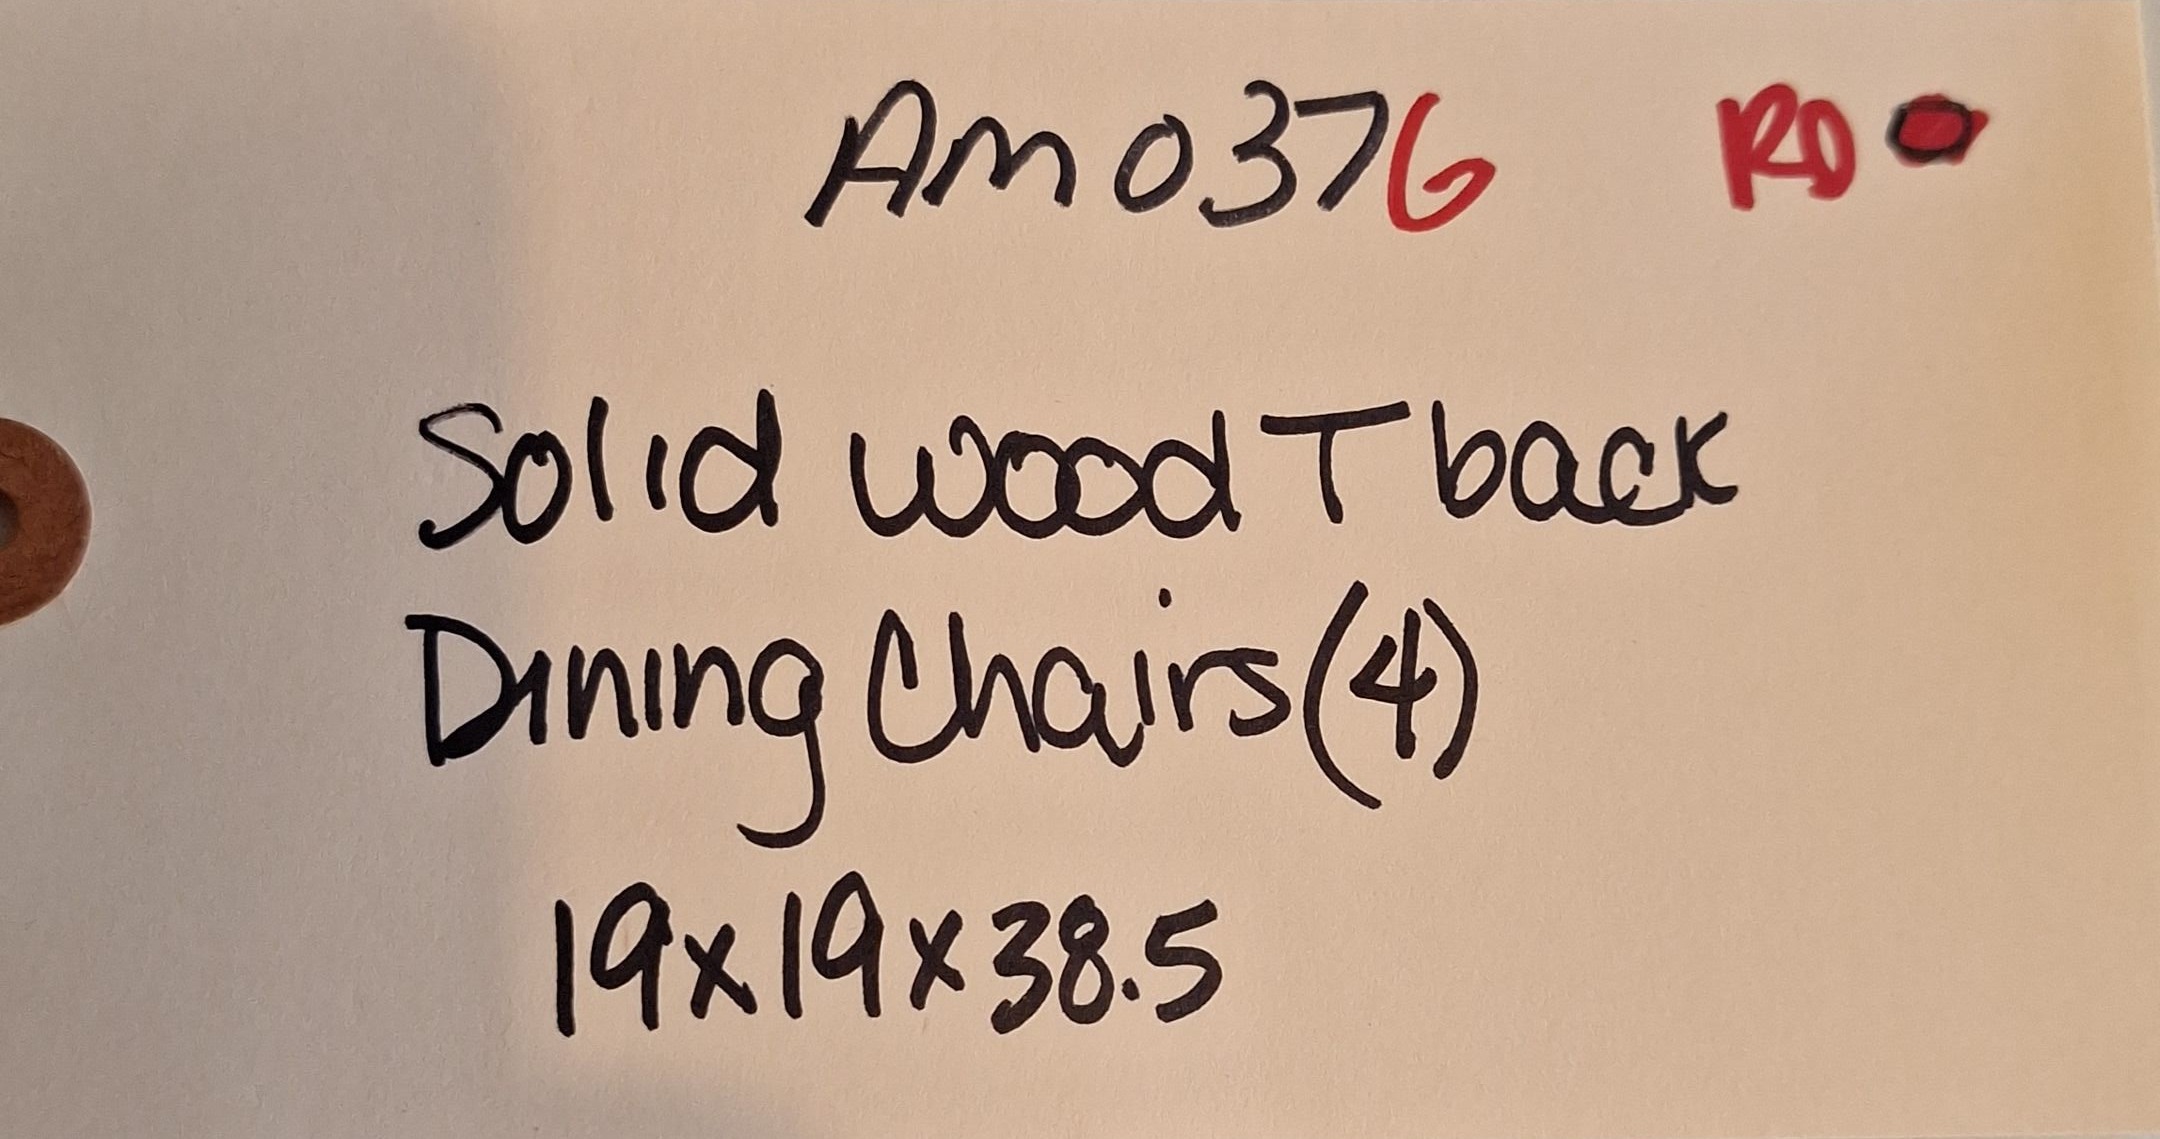 Am 0376 RD
Solid wood T back
Dining Chairs (4)
19x19x38.5